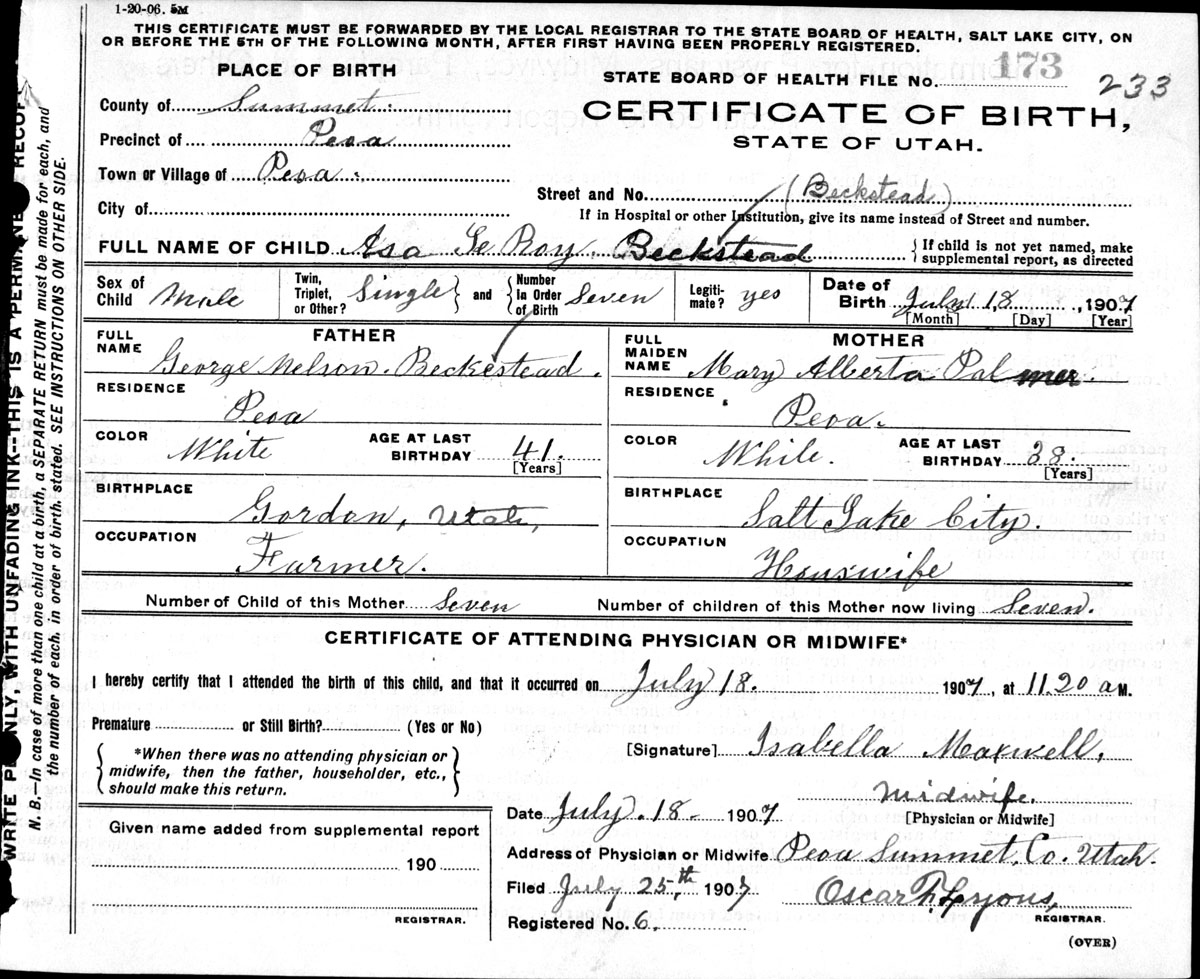 1-20-06. 5M
THIS CERTIFICATE MUST BE FORWARDED BY THE LOCAL REGISTRAR TO THE STATE BOARD OF HEALTH, SALT LAKE CITY, ON
OR BEFORE THE 5TH OF THE FOLLOWING MONTH, AFTER FIRST HAVING BEEN PROPERLY REGISTERED.
PLACE OF BIRTH
County of Summet.
Precinct of Peoa
Town or Village of Peoa.
City of
STATE BOARD OF HEALTH FILE No. 173
233
CERTIFICATE OF BIRTH,
STATE OF UTAH.
Street and No. (Beckstead)
If in Hospital or other Institution, give its name instead of Street and number.
FULL NAME OF CHILD Asa Le Roy. Beckstead { If child is not yet named, make supplemental report, as directed
Sex of Child Male Twin, Triplet, or Other? Single } and { Number in Order of Birth Seven Legiti-mate? yes Date of Birth July 18, 1907
[Month] [Day] [Year]
FATHER
FULL NAME George Nelson. Beckstead.
RESIDENCE Peoa
COLOR White AGE AT LAST BIRTHDAY 41. [Years]
BIRTHPLACE Gordon, Utah,
OCCUPATION Farmer.
MOTHER
FULL MAIDEN NAME Mary Alberta Palmer.
RESIDENCE Peoa.
COLOR White. AGE AT LAST BIRTHDAY 38. [Years]
BIRTHPLACE Salt Lake City.
OCCUPATION Houswife
Number of Child of this Mother Seven Number of children of this Mother now living Seven.
CERTIFICATE OF ATTENDING PHYSICIAN OR MIDWIFE*
I hereby certify that I attended the birth of this child, and that it occurred on July 18. 1907, at 11.20 a M.
Premature or Still Birth? (Yes or No)
{ *When there was no attending physician or
midwife, then the father, householder, etc.,
should make this return. }
[Signature] Isabella Maxwell,
Midwife.
[Physician or Midwife]
Given name added from supplemental report
190
REGISTRAR.
Date July. 18. 1907
Address of Physician or Midwife Peoa Summet, Co. Utah.
Filed July 25th, 1907 Oscar F. Lyons,
REGISTRAR.
Registered No. 6.
(OVER)
WRITE ONLY, WITH UNFADING INK—THIS IS A PERMANE RECOR
N. B.—In case of more than one child at a birth, a SEPARATE RETURN must be made for each, and
the number of each, in order of birth, stated. SEE INSTRUCTIONS ON OTHER SIDE.